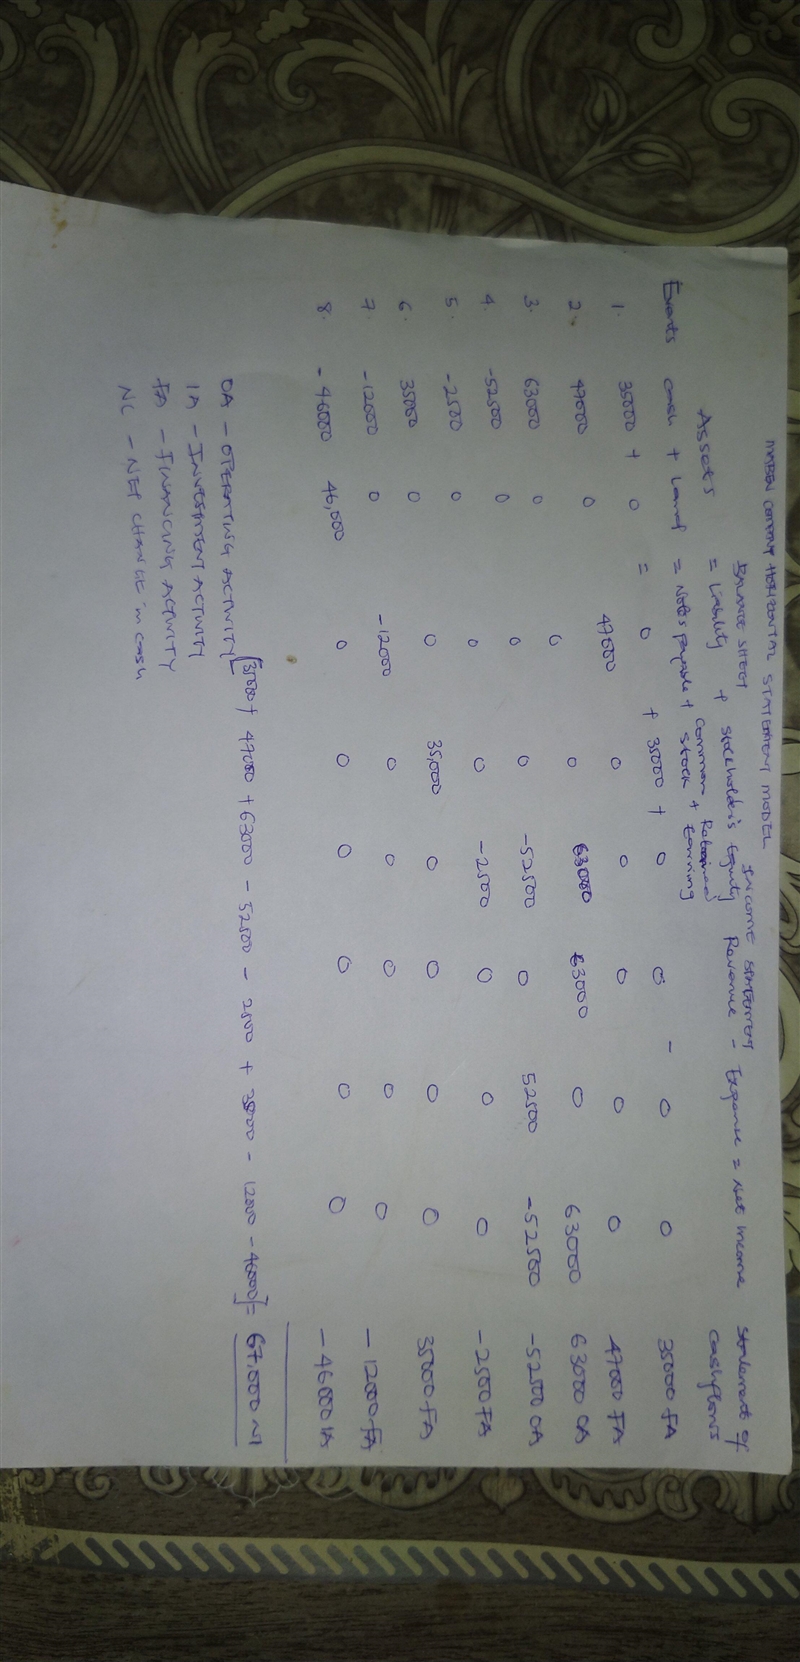 HORIZONTAL STATEMENT MODEL
BALANCE SHEET INCOME STATEMENT
Assets = Liability + Stockholder's Equity Revenue - Expense = Net Income Statement of
Events Cash + Land = Notes payable + Common Stock + Retained Earning Cashflows
1. 35000 + 0 = 0 + 35000 + 0 0 - 0 0 35000 FA
2. 47000 0 47000 0 0 0 0 0 47000 FA
3. 63000 0 0 0 63000 63000 0 63000 63000 OA
4. -52500 0 0 0 -52500 0 52500 -52500 -52500 OA
5. -2500 0 0 0 -2500 0 0 0 -2500 FA
6. 35000 0 0 35,000 0 0 0 0 35000 FA
7. -12000 0 -12000 0 0 0 0 0 -12000 FA
8. -46000 46,000 0 0 0 0 0 0 -46000 IA
OA - OPERATING ACTIVITY [35000 + 47000 + 63000 - 52500 - 2500 + 35000 - 12000 - 46000] = 67,000 NI
IA - INVESTMENT ACTIVITY
FA - FINANCING ACTIVITY
NC - NET CHANGE in cash